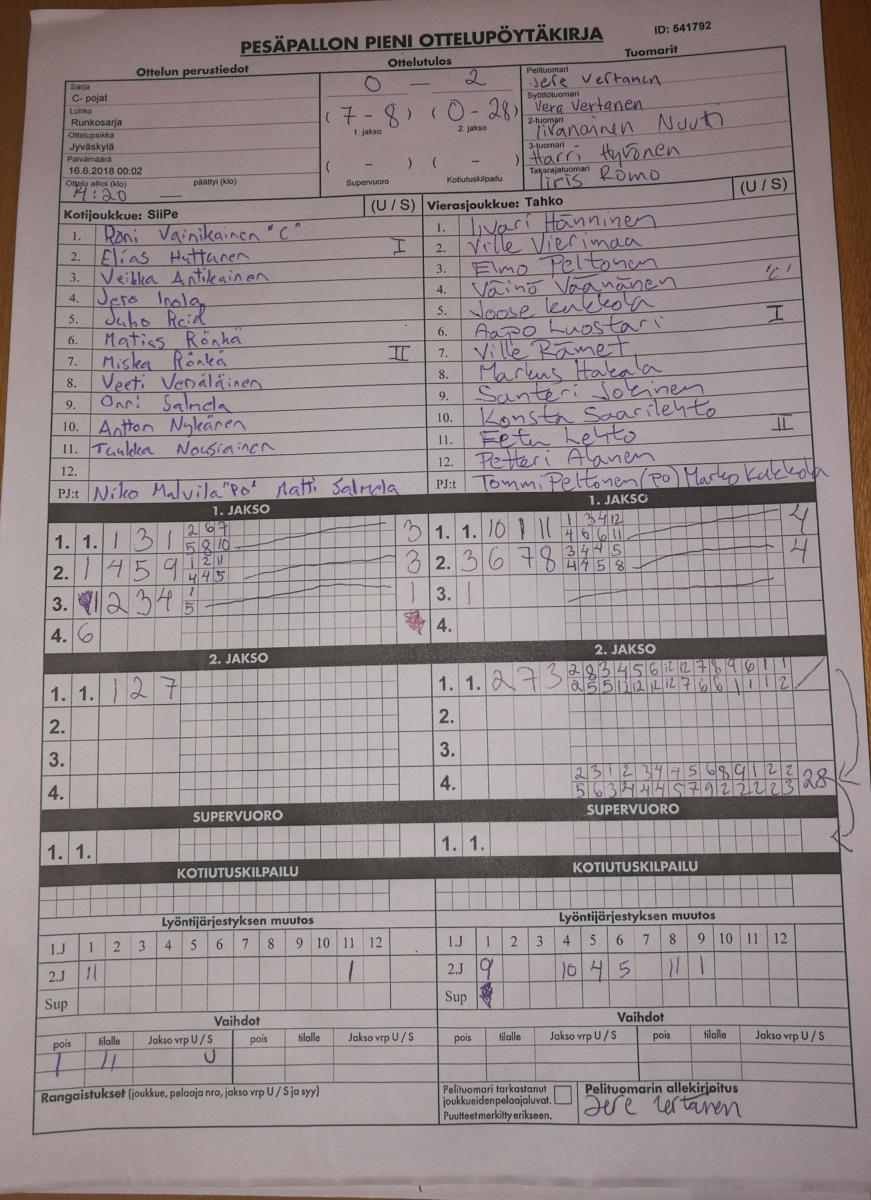 PESÄPALLON PIENI OTTELUPÖYTÄKIRJA
ID: 541792
Ottelun perustiedot
Ottelutulos
Tuomarit
Sarja
C- pojat
Lohko
Runkosarja
Ottelupaikka
Jyväskylä
Päivämäärä
16.6.2018 00:02
Ottelu alkoi (klo) päättyi (klo)
14:20
0 - 2
(7 - 8) (0 - 28)
1. jakso 2. jakso
( - ) ( - )
Supervuoro Kotiutuskilpailu
Pelituomari
Jere Vertanen
Syöttötuomari
Vera Vertanen
2-tuomari
Iivanainen Nuutti
3-tuomari
Harri Hyvönen
Takarajatuomari
Iiris Romo
Kotijoukkue: SiiPe (U / S)
1. Roni Vainikainen "C"
2. Elias Huttunen I
3. Veikka Antikainen
4. Jero Inola
5. Juho Reid
6. Matias Rönkä
7. Miska Rönkä II
8. Veeti Venäläinen
9. Onni Salmela
10. Antton Nykänen
11. Tuukka Nousiainen
12.
PJ:t Niko Malvila "PO" Matti Salmela
Vierasjoukkue: Tahko (U / S)
1. Iivari Hänninen
2. Ville Vierimaa
3. Elmo Peltonen
4. Väinö Väänänen "C"
5. Joose Kukkola
6. Aapo Luostari I
7. Ville Rämet
8. Markus Hakala
9. Santeri Jokinen
10. Konsta Saarilehto
11. Eetu Lehto II
12. Petteri Alanen
PJ:t Tommi Peltonen (PO) Marko Kukkola
1. JAKSO
1. 1. 1 3 1 2 6 7 3
5 8 10
2. 1 4 5 9 1 2 11 3
4 4 5
3. 1 2 3 4 1 1
5
4. 6
1. JAKSO
1. 1. 10 1 11 1 3 4 12 4
4 6 6 11
2. 3 6 7 8 3 4 4 5 4
4 4 5 8
3. 1
4.
2. JAKSO
1. 1. 1 2 7
2.
3.
4.
2. JAKSO
1. 1. 2 7 3 2 8 3 4 5 6 12 12 7 8 9 6 1 1
2 5 5 12 12 12 12 7 6 6 1 1 1 2
2.
3.
4. 2 3 1 2 3 4 4 5 6 8 9 1 2 2 28
5 6 3 4 4 4 5 7 9 2 2 2 2 3
SUPERVUORO
1. 1.
SUPERVUORO
1. 1.
KOTIUTUSKILPAILU
KOTIUTUSKILPAILU
Lyöntijärjestyksen muutos
1.J 1 2 3 4 5 6 7 8 9 10 11 12
2.J 11 1
Sup
Lyöntijärjestyksen muutos
1.J 1 2 3 4 5 6 7 8 9 10 11 12
2.J 9 10 4 5 11 1
Sup
Vaihdot
pois tilalle Jakso vrp U / S pois tilalle Jakso vrp U / S
1 11 U
Vaihdot
pois tilalle Jakso vrp U / S pois tilalle Jakso vrp U / S
Rangaistukset (joukkue, pelaaja nro, jakso vrp U / S ja syy)
Pelituomari tarkastanut
joukkueidenpelaajaluvat.
Puutteetmerkitty erikseen.
Pelituomarin allekirjoitus
Jere Vertanen